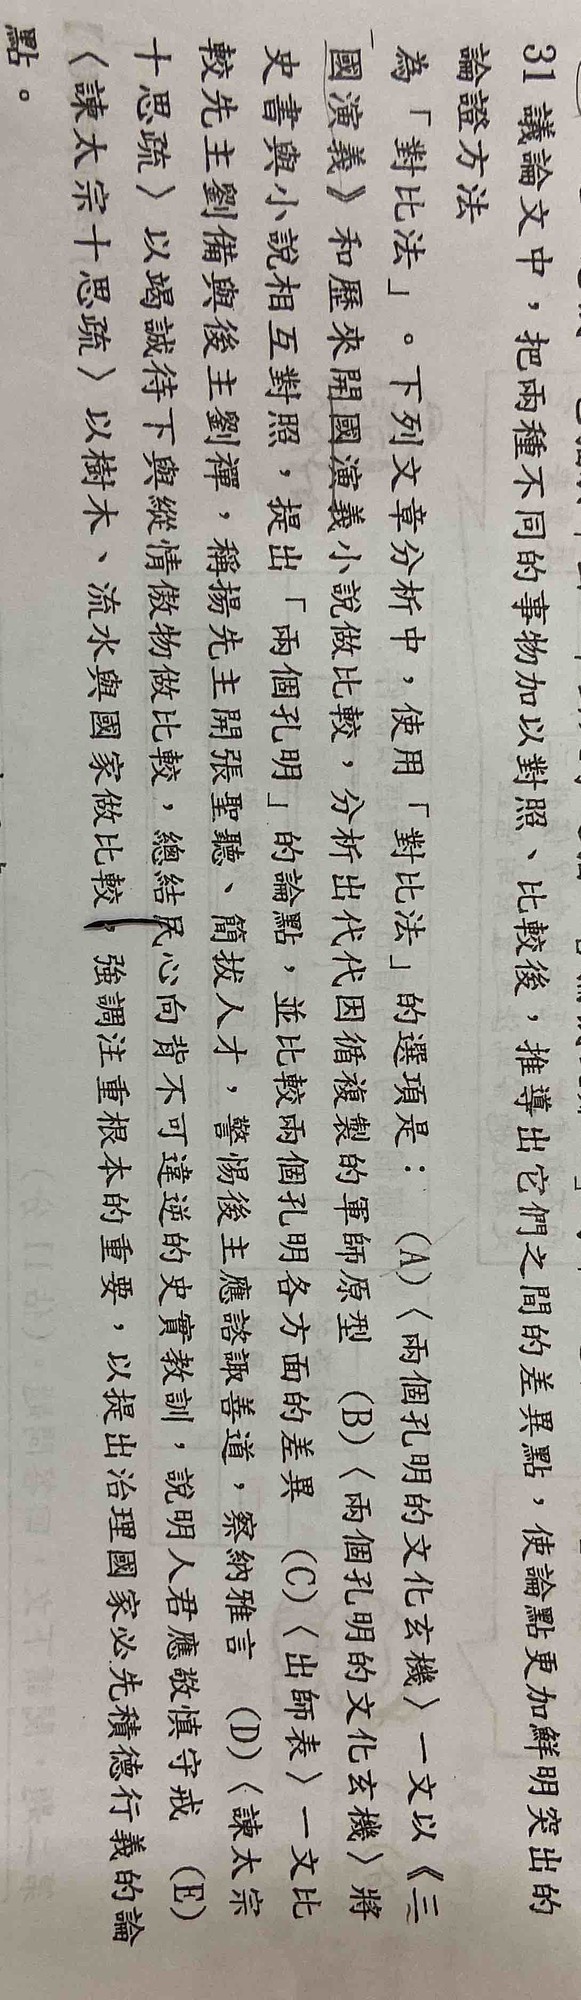 31 議論文中，把兩種不同的事物加以對照、比較後，推導出它們之間的差異點，使論點更加鮮明突出的
論證方法
為「對比法」。下列文章分析中，使用「對比法」的選項是： (A)〈兩個孔明的文化玄機〉一文以《三
國演義》和歷來開國演義小說做比較，分析出代代因循複製的軍師原型 (B)〈兩個孔明的文化玄機〉將
史書與小說相互對照，提出「兩個孔明」的論點，並比較兩個孔明各方面的差異 (C)〈出師表〉一文比
較先主劉備與後主劉禪，稱揚先主開張聖聽、簡拔人才，警惕後主應諮諏善道，察納雅言 (D)〈諫太宗
十思疏〉以竭誠待下與縱情傲物做比較，總結民心向背不可違逆的史實教訓，說明人君應敬慎守戒 (E)
〈諫太宗十思疏〉以樹木、流水與國家做比較，強調注重根本的重要，以提出治理國家必先積德行義的論
點。